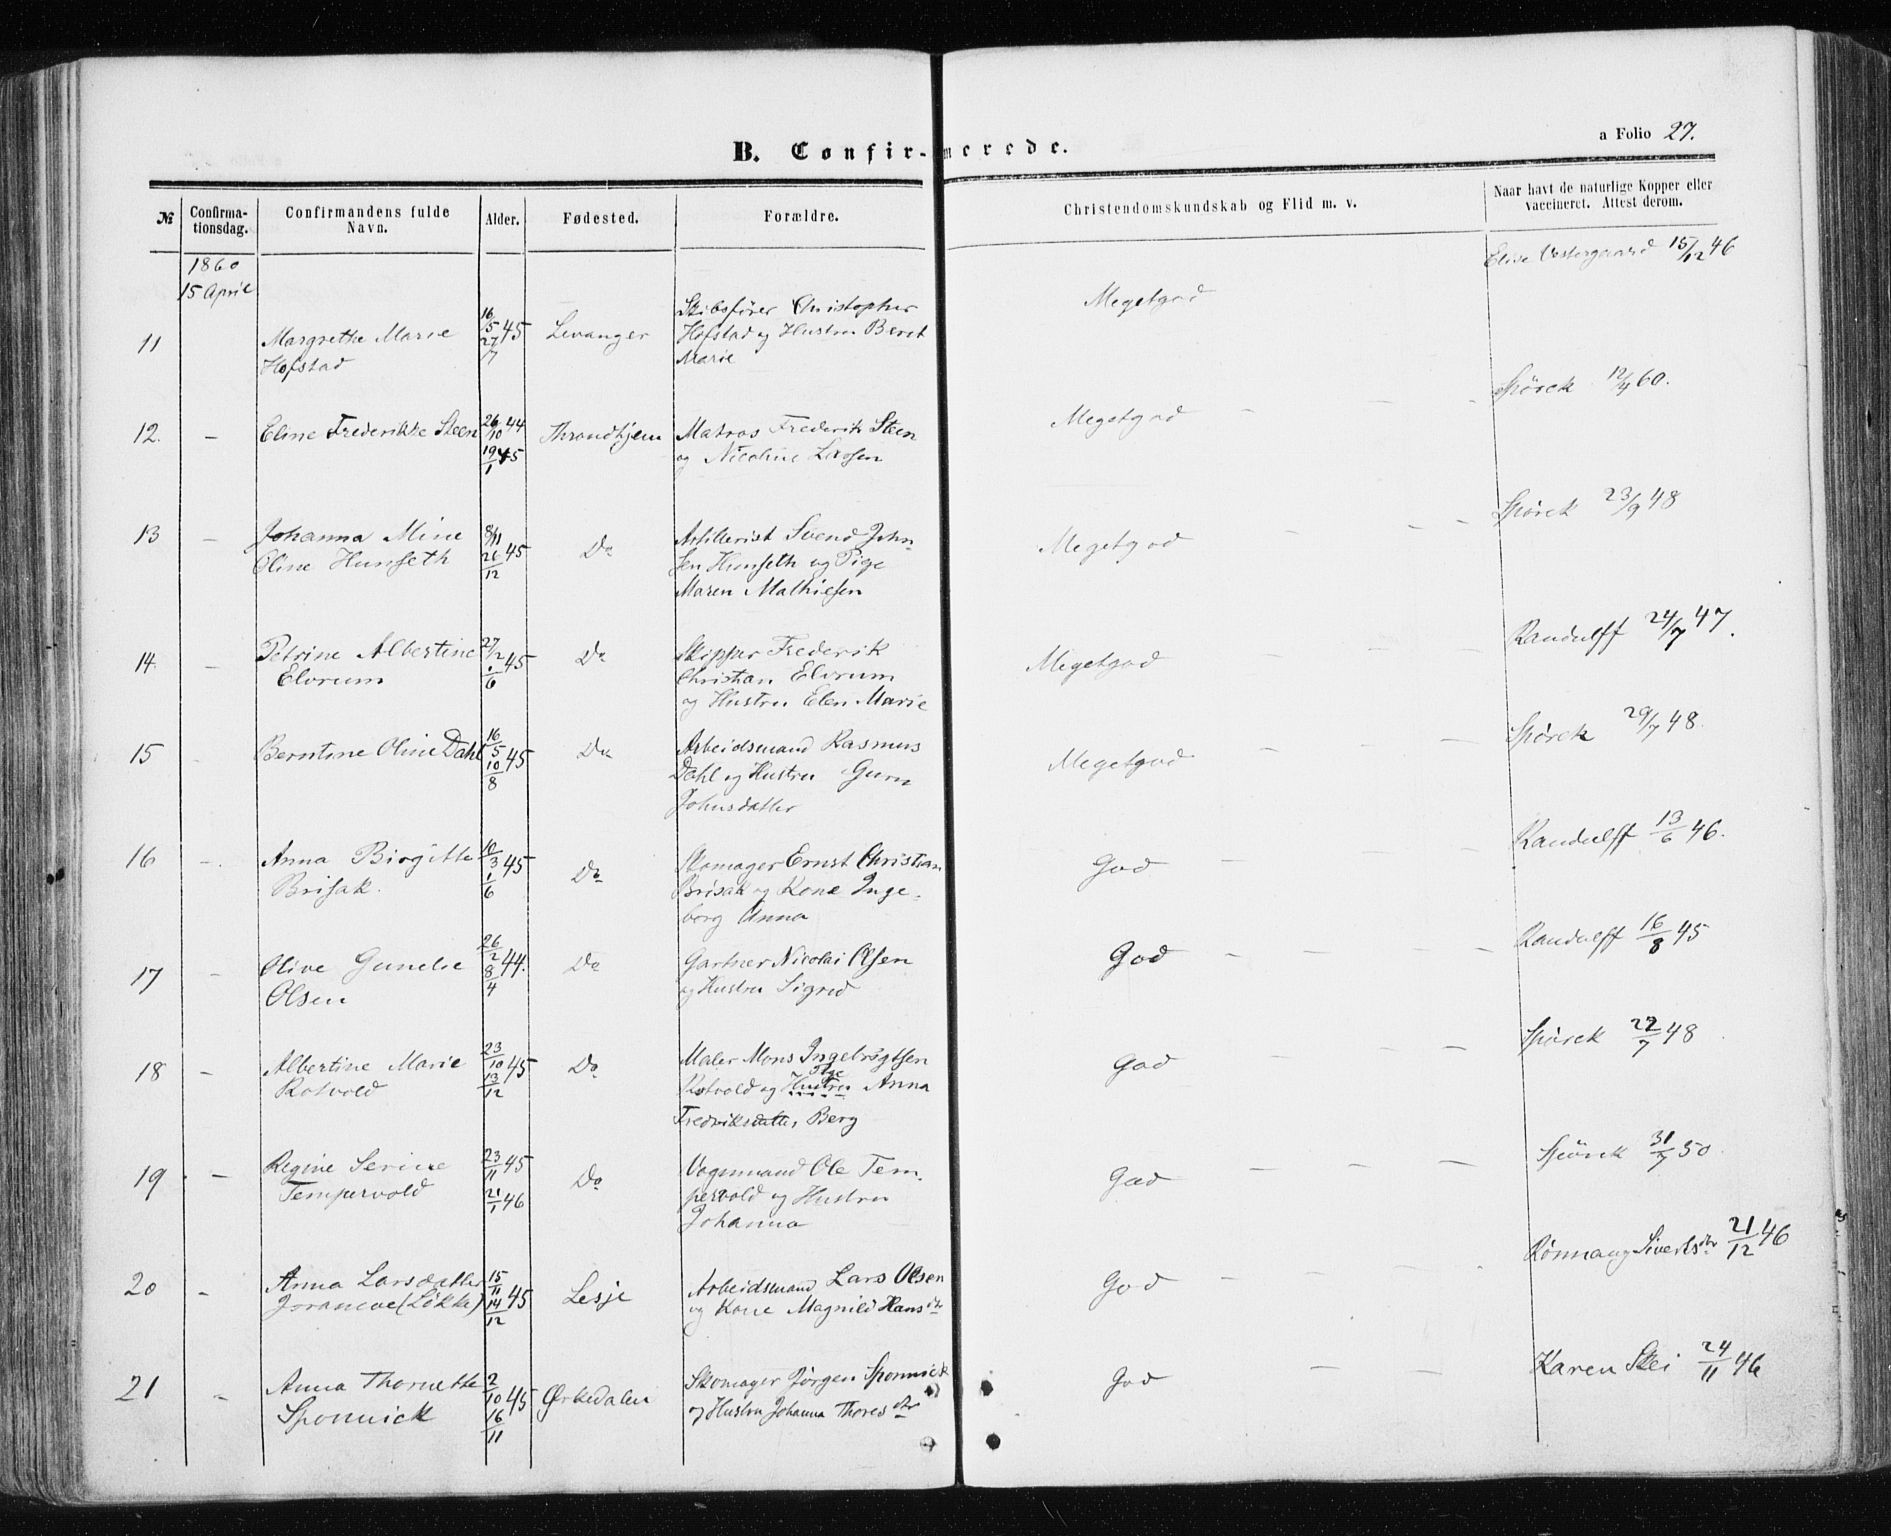 a Folio 27.
B. Confirmerede.
№ Confirmationsdag. Confirmandens fulde Navn. Alder. Fødested. Forældre. Christendomskundskab og Flid m. v. Naar havt de naturlige Kopper eller vaccineret. Attest derom.
1860
15 April
Elise Vestergaard 15/12 46
11 Margrethe Marie 16/5 45 Levanger Skibsfører Christopher Megetgod
Hofstad 27/7 Hofstad og Hustru Beret
Marie
12. – Eline Frederikke Steen 26/10 44 Throndhjem Matros Frederik Steen Megetgod – – – Spörck 12/4 60.
19/1 45 og Nicoline Larsen
13 – Johanna Mine 8/11 45 Do Artillerist Svend John- Megetgod – – – Spörck 23/9 48
Oline Hunseth 26/12 sen Hunseth og Pige
Maren Mathiesen
14. – Petrine Albertine 27/2 45 Do Skipper Frederik Megetgod – – – Randulff 24/7 47.
Elvrum 1/6 Christian Elvrum
og Hustru Elen Marie
15 – Berntine Oline Dahl 16/5 45 Do Arbeidsmand Rasmus Megetgod – – – Spörck 29/7 48.
10/8 Dahl og Hustru Guru
Johnsdatter
16 – Anna Birgitte 10/3 45 Do Skomager Ernst Christian God – – – Randulff 13/6 46.
Brisak. 1/6 Brisak og Kone Inge-
borg Anna
17 – Olive Gunelie 26/2 44. Do Gartner Nicolai Olsen God – – – Randulff 16/8 45
Olsen 8/4 og Hustru Sigrid
18 – Albertine Marie 23/10 45 Do Maler Mons Ingebrigtsen God – – – Spörck 22/7 48
Rotvold 13/12 Rotvold og Hustru Pige Anna
Fredriksdatter Berg
19 – Regine Serine 23/11 45 Do Vognmand Ole Tem- God – – – Spörck 31/7 50.
Tempervold 21/1 46 pervold og Hustru
Johanna
20 – Anna Larsdatter 15/11 45 Lesje Arbeidsmand Lars Olsen God – – – Rönnaug Sivertsdtr 21/12 46
(Løkke) 14/12 og Kone Magnild Hansdtr
21 – Anna Thornette 2/10 45 Ørkedalen Skomager Jørgen Sponnick God – – Karen Skei 24/11 46
Sponnick 16/11 og Hustru Johanna Thoresdtr